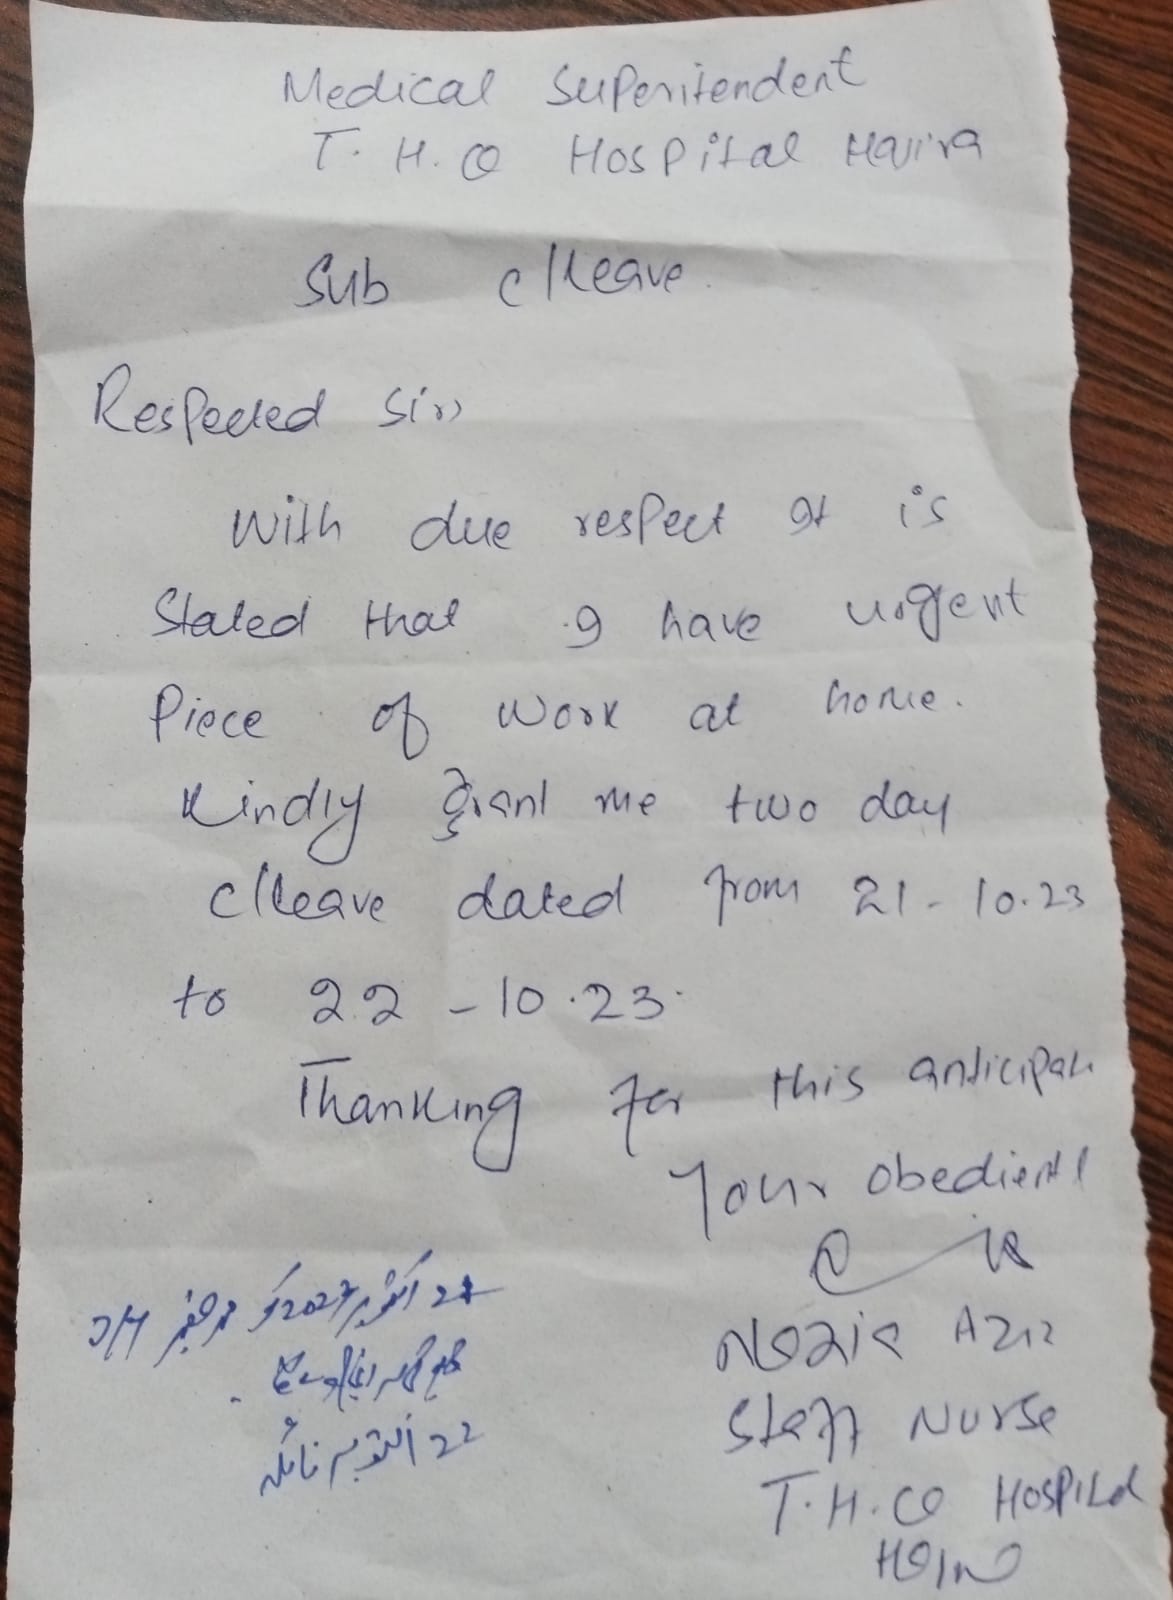 Medical Superitendent
T.H.Q Hospital Hajira
Sub c/leave.
Respected Sir,
With due respect It is
Stated that I have urgent
Piece of work at home.
Kindly grant me two day
c/leave dated from 21-10.23
to 22-10.23.
Thanking for this anticipat
Your obedient
Nazia Aziz
Staff Nurse
T.H.Q Hospital
اکتوبر
22 اکتوبر نائلہ